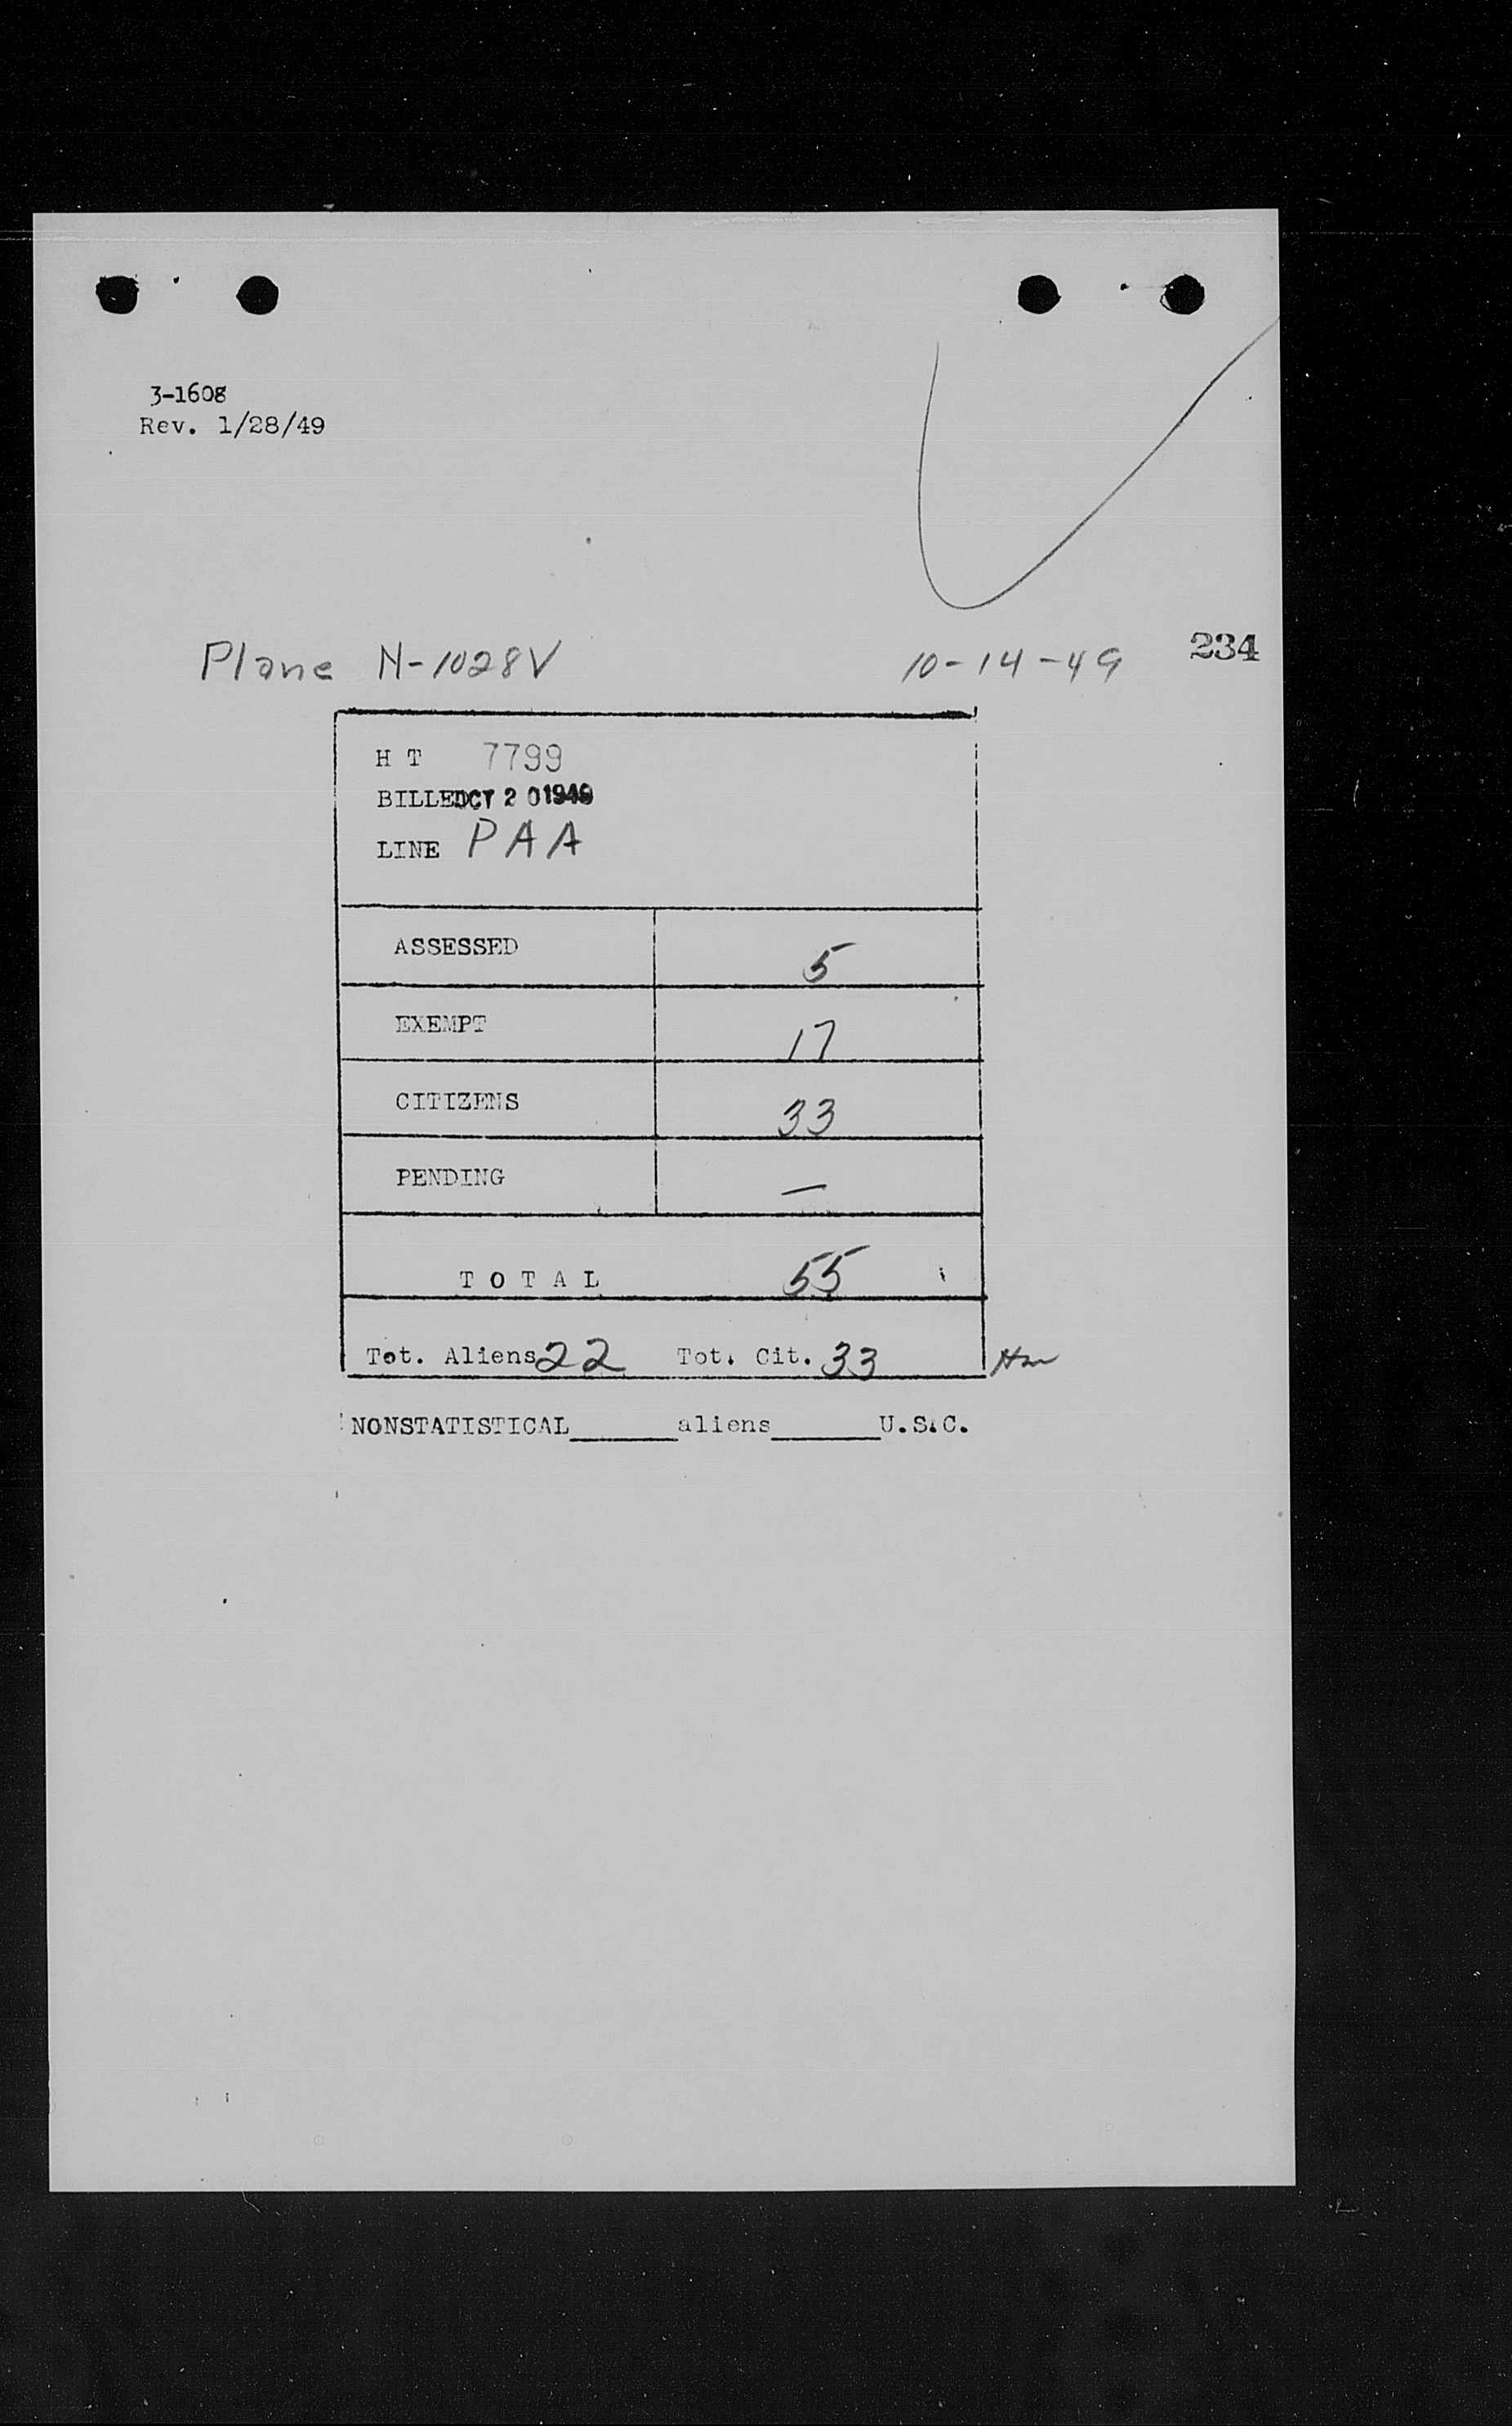 3-1608
Rev. 1/28/49
Plane N-1028V 10-14-49 234
H T 7799
BILLED OCT 20 1949
LINE PAA
ASSESSED 5
EXEMPT 17
CITIZENS 33
PENDING —
T O T A L 55
Tot. Aliens 22 Tot. Cit. 33
NONSTATISTICAL______aliens______U.S.C.